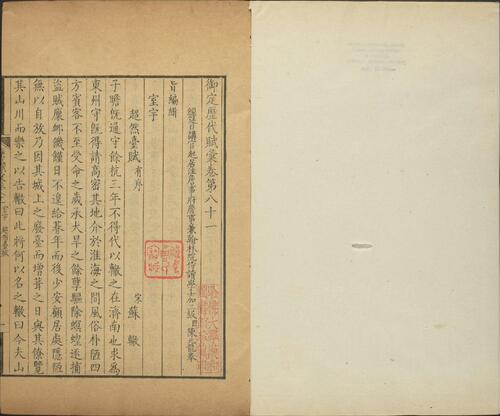 御定歷代賦彙卷第八十一
經筵日講官起居注詹事府詹事兼翰林院侍讀學士加二級臣陳元龍奉
旨編輯
室宇
超然臺賦有序
宋蘇轍
子瞻既通守餘杭三年不得代以轍之在濟南也求為
東州守既得請高密其地介於淮海之間風俗朴陋四
方賓客不至受命之歲承大旱之餘孽驅除螟蝗逐捕
盜賊廩卹饑饉日不遑給朞年而後少安顧居處隱陋
無以自放乃因其城上之廢臺而增葺之日與其僚覽
其山川而樂之以告轍曰此將何以名之轍曰今夫山